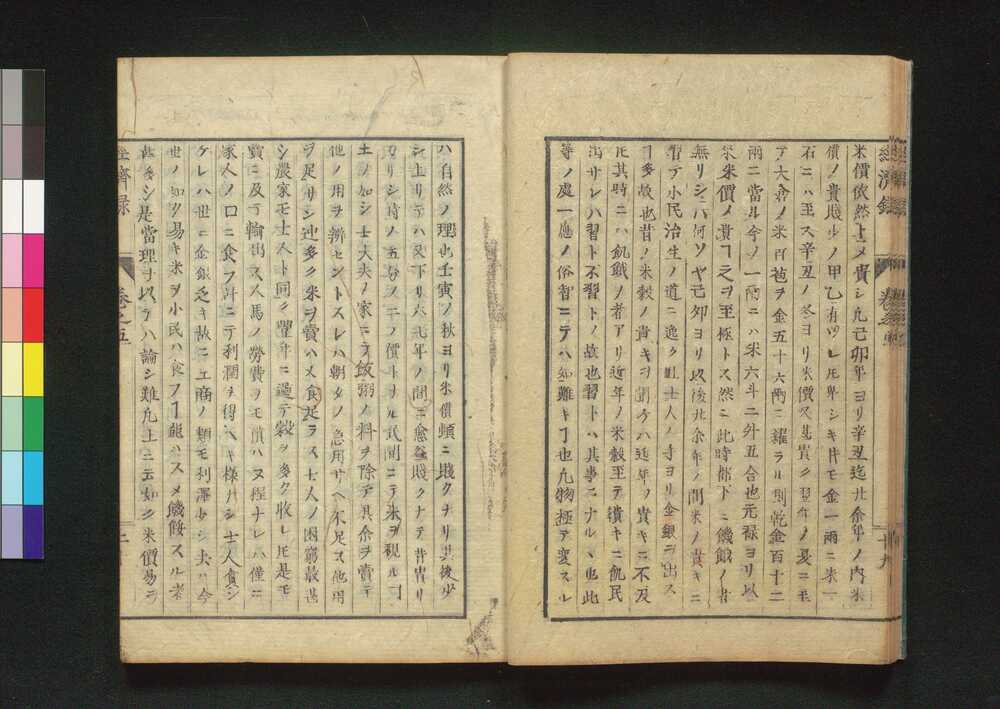 米價依然トメ貴シ凡己卯年ヨリ辛丑迄廿余年ノ内米
價ノ貴賤ルノ甲乙有ツレ𪜈卑シキ時モ金一兩ニ米一
石ニハ至ス辛丑ノ冬ヨリ米價又甚貴ク翌年ノ夏ニモ
ア大倉ノ米百苞ヲ金五十六兩ニ糴ラル則乾金百十二
兩ニ當ル今ノ一兩ニハ米六斗二升五合也元禄ヨリ以
來米價ノ貴ヿ之ヲ至極トス然ニ此時都下ニ饑餓ノ者
無リシハ何ソヤ己卯ヨリ以後廿余年ノ間米ノ貴キニ
習テ小民治生ノ道ニ逸ク且士人ノ手ヨリ金銀ヲ出ス
ヿ多故也昔ノ米穀ノ貴キヲ聞クハ近年ノ貴キニ不及
𪜈其時ニハ飢餓ノ者アリ近年ノ米穀至テ貴キニ飢民
出サレハ習ト不習トノ故也習トハ其事ニナルヽ也此
等ノ處一應ノ俗智ニテハ知難キヿ也凡物極テ変スル
ハ自然ノ理也壬寅ノ秋ヨリ米價頓ニ賤クナリ其後少
シ上リテハ又下リ六七年ノ間ニ愈益賤クナテ昔貴
カリシ時ノ五分ノ二ノ價トナル武門ニテ米ヲ視ルヿ
土ノ如シ士大夫ノ家ニテ飯粥ノ料ヲ除テ其余ヲ賣テ
他ノ用ヲ辨セントスレハ朝夕ノ急用サヘ不足ス他用
ヲ足サンニ多ク米ヲ賣ハメ食足ラス士人ノ困窮最甚
シ農家モ士人ト同ク豐年ニ過テ穀ヲ多ク收レ𪜈是モ
賣ニ及テ輸出ス人馬ノ勞費ヲモ償ハヌ程ナレハ僅ニ
家人ノ口ニ食フ計ニテ利潤ヲ得ヘキ様ハナシ士人貪シ
ケレハ世ニ金銀乏キ故ニ工商ノ類モ利澤少シ夫ハ今
世ノ如ク易キ米ヲ小民ハ食フヿ能ハスメ饑餒スル者
甚多シ是當理ヲ以テハ論シ難凡上ニ云如ク米價易テ
經濟録
卷之五
十九